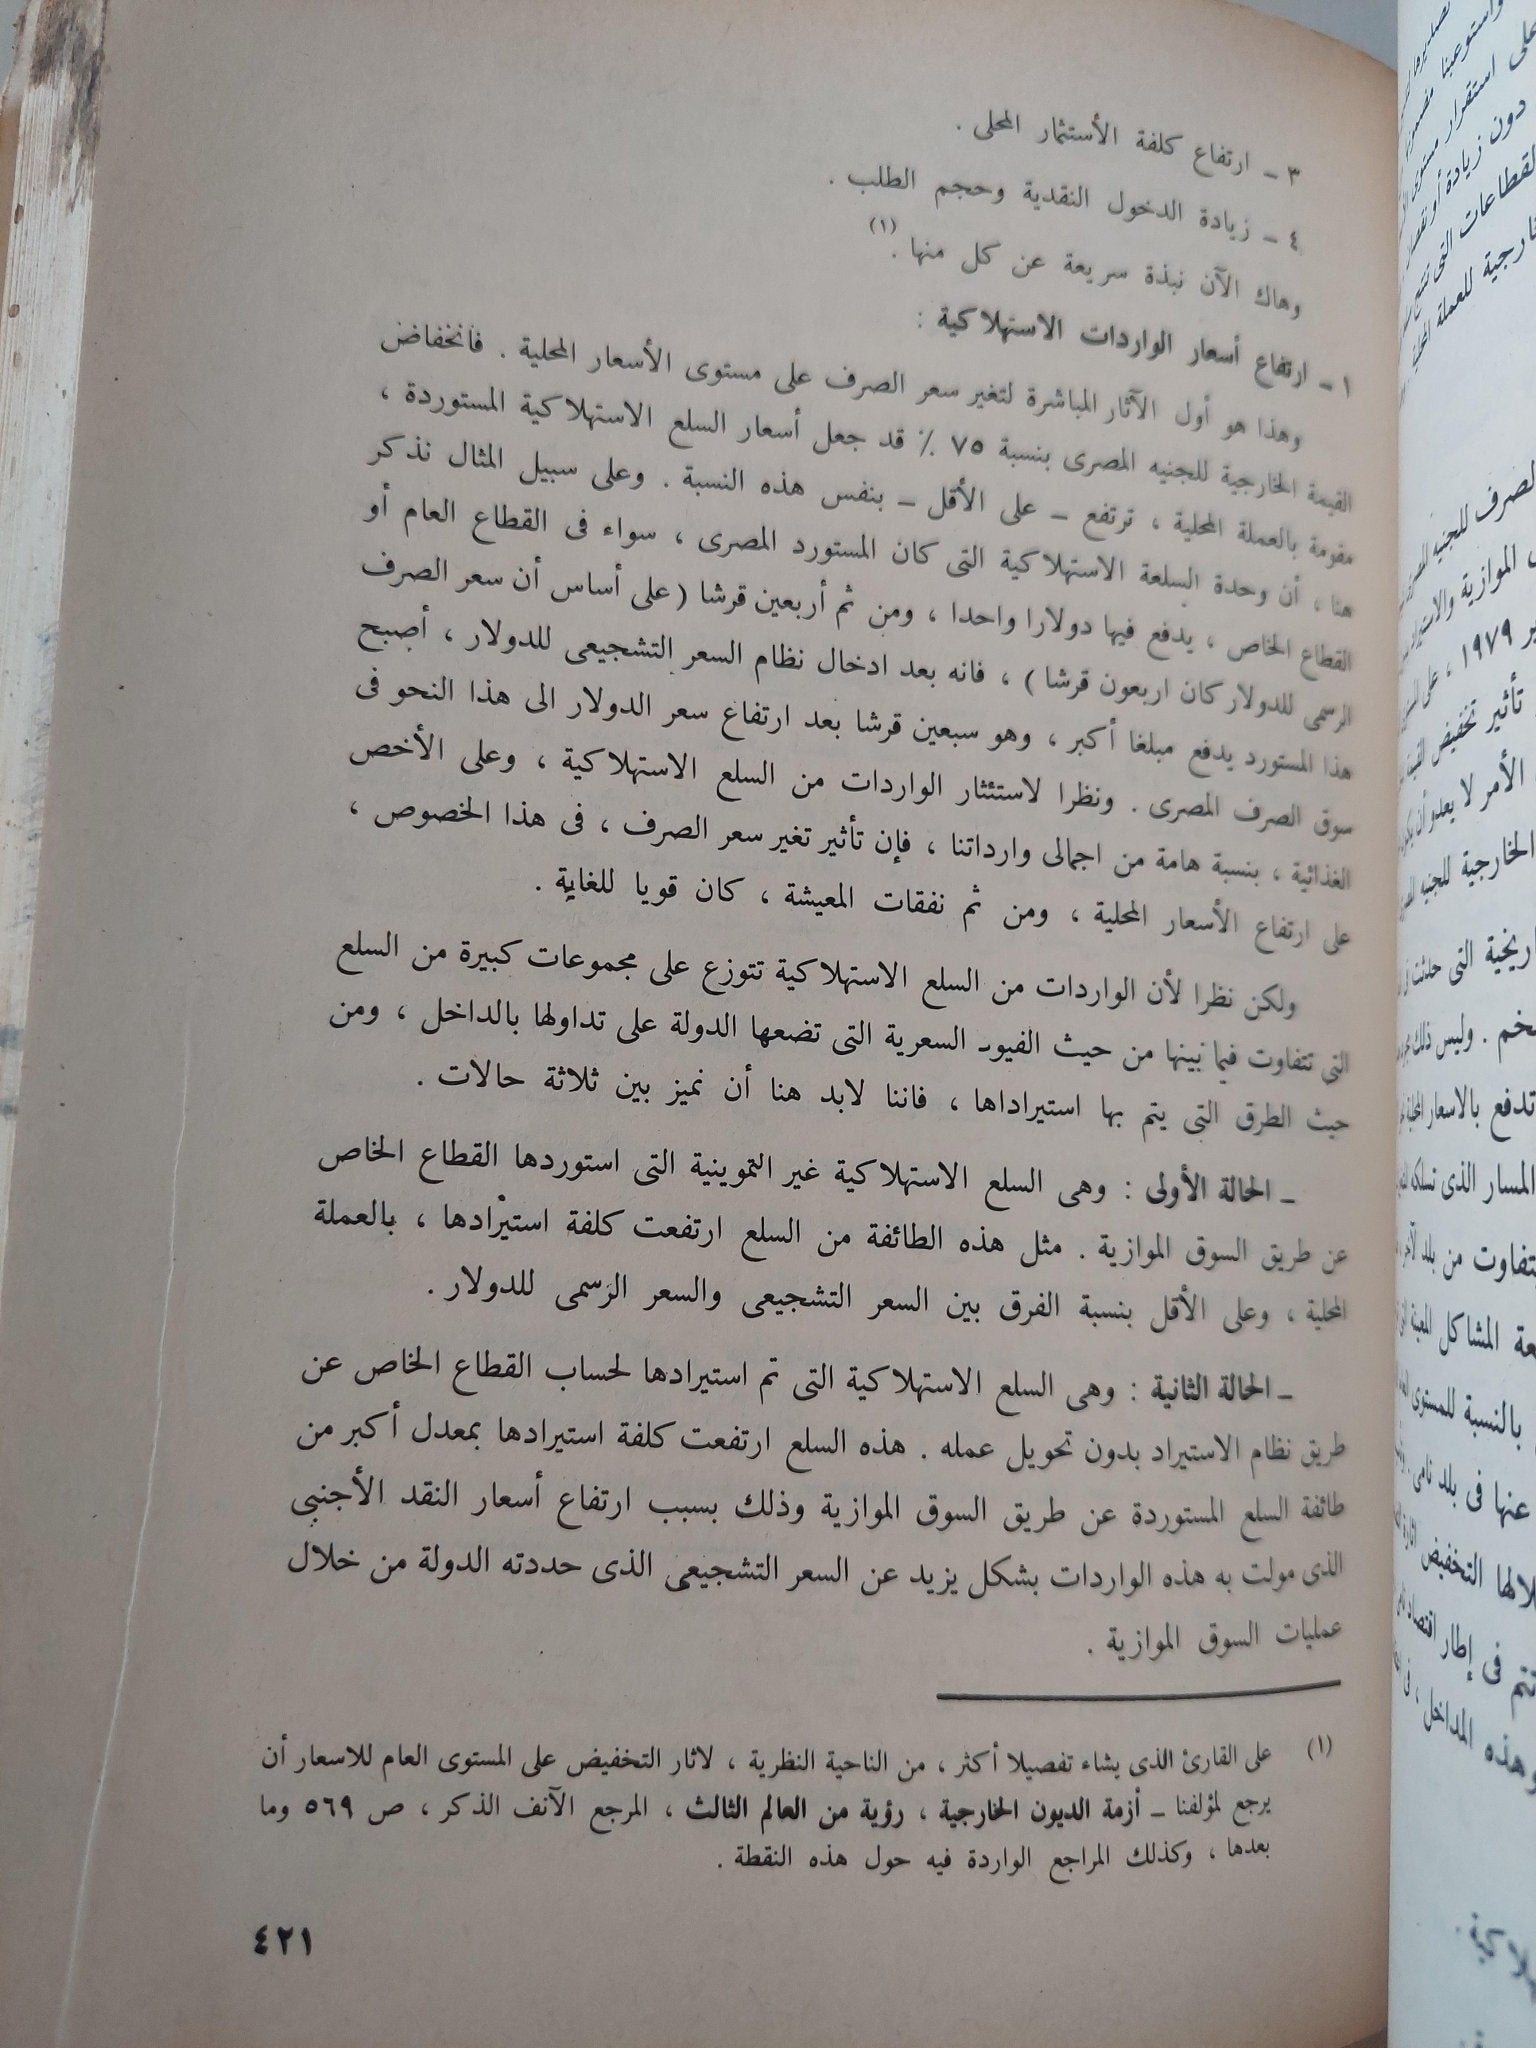 ٣ ـ ارتفاع كلفة الأستثمار المحلى .
٤ ـ زيادة الدخول النقدية وحجم الطلب .
وهاك الآن نبذة سريعة عن كل منها . (١)
١ ـ ارتفاع أسعار الواردات الاستهلاكية :
وهذا هو أول الآثار المباشرة لتغير سعر الصرف على مستوى الأسعار المحلية . فانخفاض
القيمة الخارجية للجنيه المصرى بنسبة ٧٥ ٪ قد جعل أسعار السلع الاستهلاكية المستوردة ،
مقومة بالعملة المحلية ، ترتفع ـ على الأقل ـ بنفس هذه النسبة . وعلى سبيل المثال نذكر
هنا ، أن وحدة السلعة الاستهلاكية التى كان المستورد المصرى ، سواء فى القطاع العام أو
القطاع الخاص ، يدفع فيها دولارا واحدا ، ومن ثم أربعين قرشا ( على أساس أن سعر الصرف
الرسمى للدولار كان اربعون قرشا ) ، فانه بعد ادخال نظام السعر التشجيعى للدولار ، أصبح
هذا المستورد يدفع مبلغا أكبر ، وهو سبعين قرشا بعد ارتفاع سعر الدولار الى هذا النحو فى
سوق الصرف المصرى . ونظرا لاستئثار الواردات من السلع الاستهلاكية ، وعلى الأخص
الغذائية ، بنسبة هامة من اجمالى وارداتنا ، فإن تأثير تغير سعر الصرف ، فى هذا الخصوص ،
على ارتفاع الأسعار المحلية ، ومن ثم نفقات المعيشة ، كان قويا للغاية .
ولكن نظرا لأن الواردات من السلع الاستهلاكية تتوزع على مجموعات كبيرة من السلع
التي تتفاوت فيما بينها من حيث القيود السعرية التى تضعها الدولة على تداولها بالداخل ، ومن
حيث الطرق التى يتم بها استيراداها ، فاننا لابد هنا أن نميز بين ثلاثة حالات .
ـ الحالة الأولى : وهى السلع الاستهلاكية غير التموينية التى استوردها القطاع الخاص
عن طريق السوق الموازية . مثل هذه الطائفة من السلع ارتفعت كلفة استيرادها ، بالعملة
المحلية ، وعلى الأقل بنسبة الفرق بين السعر التشجيعى والسعر الرسمى للدولار .
ـ الحالة الثانية : وهى السلع الاستهلاكية التى تم استيرادها لحساب القطاع الخاص عن
طريق نظام الاستيراد بدون تحويل عمله . هذه السلع ارتفعت كلفة استيرادها بمعدل أكبر من
طائفة السلع المستوردة عن طريق السوق الموازية وذلك بسبب ارتفاع أسعار النقد الأجنبي
الذى مولت به هذه الواردات بشكل يزيد عن السعر التشجيعى الذى حددته الدولة من خلال
عمليات السوق الموازية .
(١) على القارئ الذى يشاء تفصيلا أكثر ، من الناحية النظرية ، لاثار التخفيض على المستوى العام للاسعار أن
يرجع لمؤلفنا ـ أزمة الديون الخارجية ، رؤية من العالم الثالث ، المرجع الآنف الذكر ، ص ٥٦٩ وما
بعدها ، وكذلك المراجع الواردة فيه حول هذه النقطة .
٤٢١